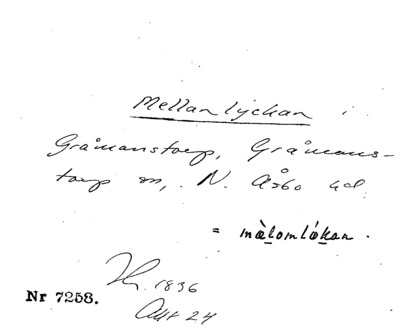 Mellanlyckan i
Gråmanstorp, Gråmans-
torp sn, N. Åsbo hd
= mèlomlókan.
1836
Akt 24
Nr 7258.